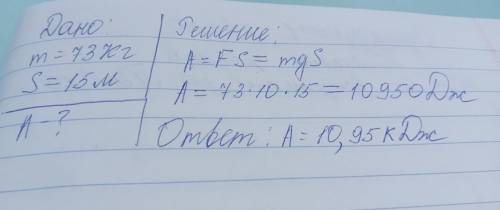 Дано:
m = 73 кг
S = 15 м
A - ?
Решение:
A = FS = mgS
A = 73·10·15 = 10950 Дж
Ответ: A = 10,95 кДж